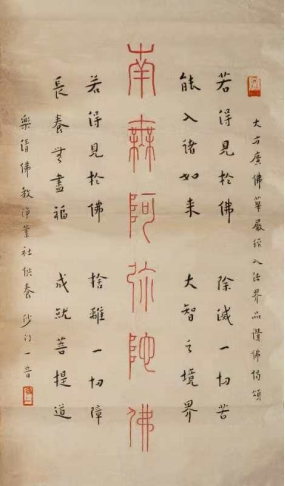 大方廣佛華嚴經入法界品讚佛偈頌
若得見於佛 除滅一切苦
能入諸如來 大智之境界
南無阿弥陀佛
若得見於佛 捨離一切障
長養無盡福 成就菩提道
樂清佛教淨業社供養 沙门一音